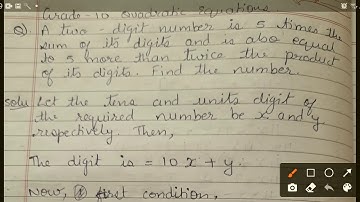 Grade-10 Quadratic Equations
Q) A two-digit number is 5 times the
sum of its digits and is also equal
to 5 more than twice the product
of its digits. Find the number.
Solu Let the tens and units digit of
the required number be x and y
respectively. Then,
The digit is = 10x + y.
Now, first condition,